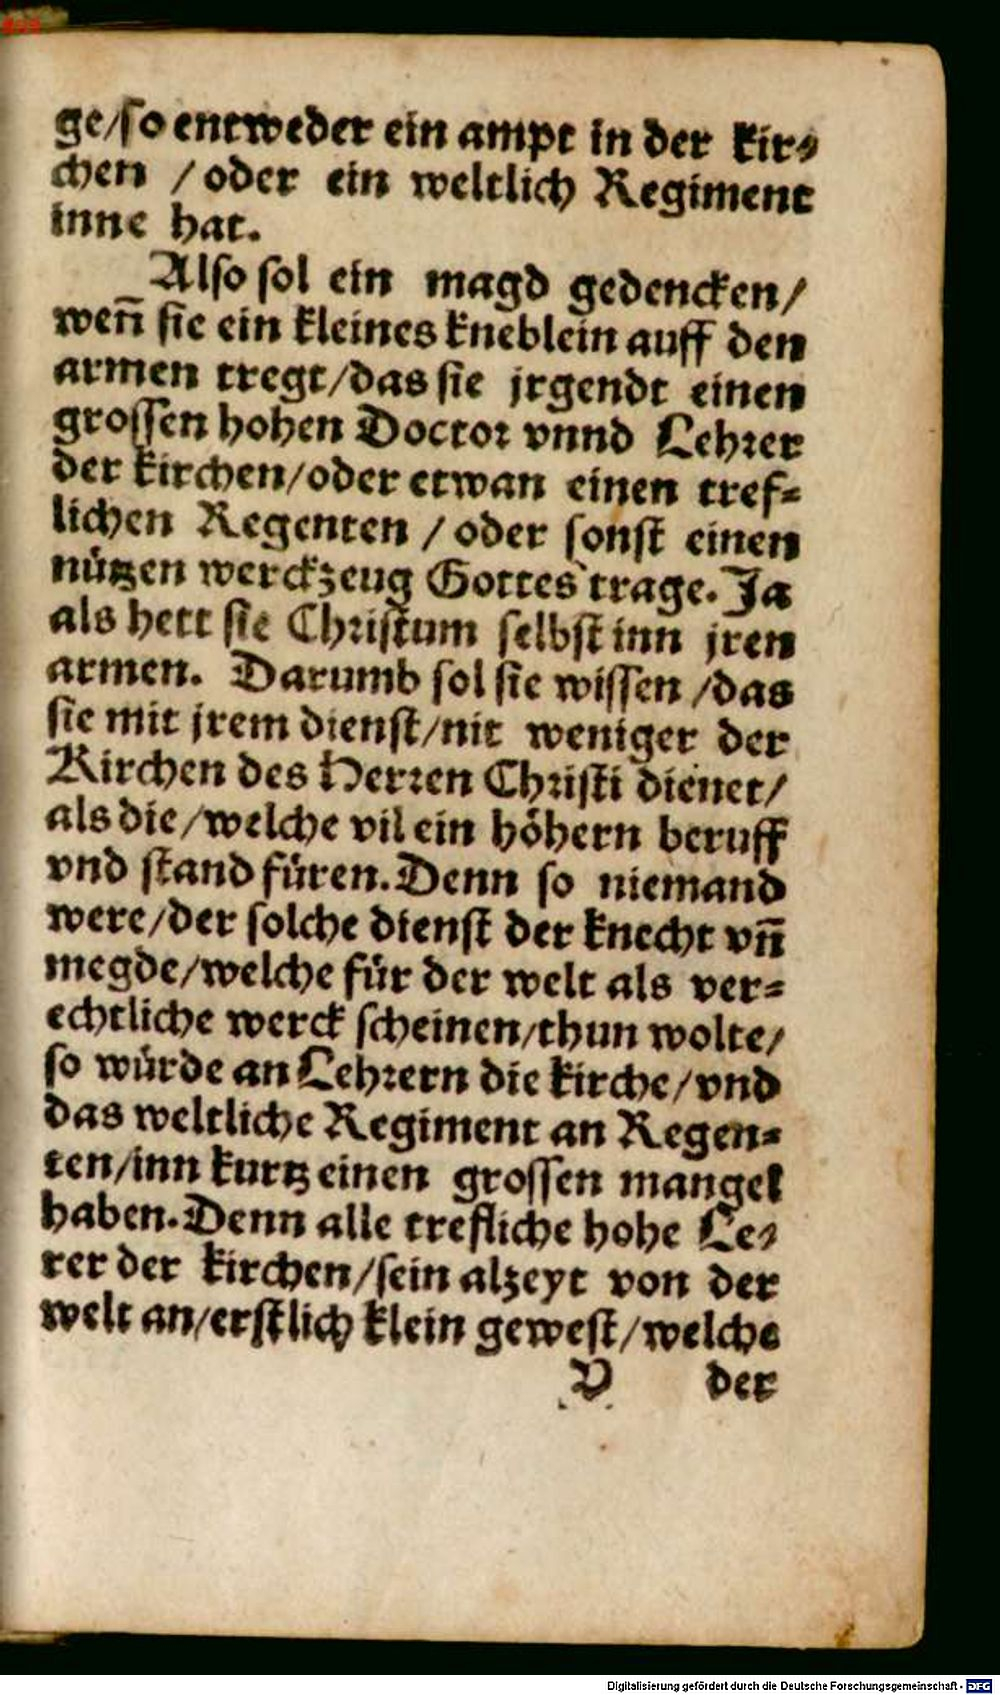 ge/so entweder ein ampt in der kir-
chen / oder ein weltlich Regiment
inne hat.
Also sol ein magd gedencken/
weñ sie ein kleines kneblein auff den
armen tregt/das sie jrgendt einen
grossen hohen Doctor vnnd Lehrer
der kirchen/oder etwan einen tref-
lichen Regenten / oder sonst einen
nützen werckzeug Gottes trage. Ja
als hett sie Christum selbst inn jren
armen. Darumb sol sie wissen /das
sie mit jrem dienst/nit weniger der
Kirchen des Herren Christi dienet/
als die/welche vil ein höhern beruff
vnd stand füren. Denn so niemand
were/der solche dienst der knecht vñ
megde/welche für der welt als ver-
echtliche werck scheinen/thun wolte/
so würde an Lehrern die kirche/vnd
das weltliche Regiment an Regen-
ten/inn kurtz einen grossen mangel
haben. Denn alle trefliche hohe Le-
rer der kirchen/sein alzeyt von der
welt an/erstlich klein gewest/welche
V der
Digitalisierung gefördert durch die Deutsche Forschungsgemeinschaft - DFG